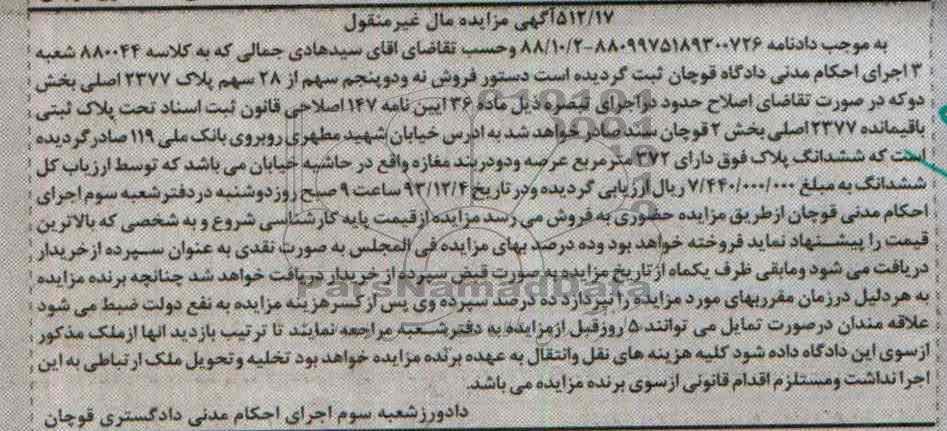 ۵۱۲/۱۷آگهی مزایده مال غیرمنقول
به موجب دادنامه ۸۸۰۹۹۷۵۱۸۹۳۰۰۷۲۶-۸۸/۱۰/۲ وحسب تقاضای اقای سیدهادی جمالی که به کلاسه ۸۸۰۰۴۴ شعبه
۳ اجرای احکام مدنی دادگاه قوچان ثبت گردیده است دستور فروش نه ودوپنجم سهم از ۲۸ سهم پلاک ۲۳۷۷ اصلی بخش
دوکه در صورت تقاضای اصلاح حدود دراجرای تبصره ذیل ماده ۳۶ ایین نامه ۱۴۷اصلاحی قانون ثبت اسناد تحت پلاک ثبتی
باقیمانده ۲۳۷۷اصلی بخش ۲ قوچان سند صادر خواهد شد به ادرس خیابان شهید مطهری روبروی بانک ملی ۱۱۹ صادر گردیده
است که ششدانگ پلاک فوق دارای ۳۷۲ مترمربع عرصه ودودربند مغازه واقع در حاشیه خیابان می باشد که توسط ارزیاب کل
ششدانگ به مبلغ ۷/۴۴۰/۰۰۰/۰۰۰ ریال ارزیابی گردیده ودر تاریخ ۹۳/۱۲/۴ ساعت ۹ صبح روزدوشنبه در دفترشعبه سوم اجرای
احکام مدنی قوچان ازطریق مزایده حضوری به فروش می رسد مزایده ازقیمت پایه کارشناسی شروع و به شخصی که بالاترین
قیمت را پیشنهاد نماید فروخته خواهد بود وده درصد بهای مزایده فی المجلس به صورت نقدی به عنوان سپرده ازخریدار
دریافت می شود ومابقی ظرف یکماه ازتاریخ مزایده به صورت قبض سپرده از خریدار دریافت خواهد شد چنانچه برنده مزایده
به هردلیل درزمان مقرربهای مورد مزایده را نپردازد ده درصد سپرده وی پس ازکسرهزینه مزایده به نفع دولت ضبط می شود
علاقه مندان درصورت تمایل می توانند ۵ روزقبل ازمزایده به دفترشعبه مراجعه نمایند تا ترتیب بازدید انها ازملک مذکور
ازسوی این دادگاه داده شود کلیه هزینه های نقل وانتقال به عهده برنده مزایده خواهد بود تخلیه وتحویل ملک ارتباطی به این
اجرا نداشت ومستلزم اقدام قانونی ازسوی برنده مزایده می باشد.
دادورزشعبه سوم اجرای احکام مدنی دادگستری قوچان
ParsNamadData